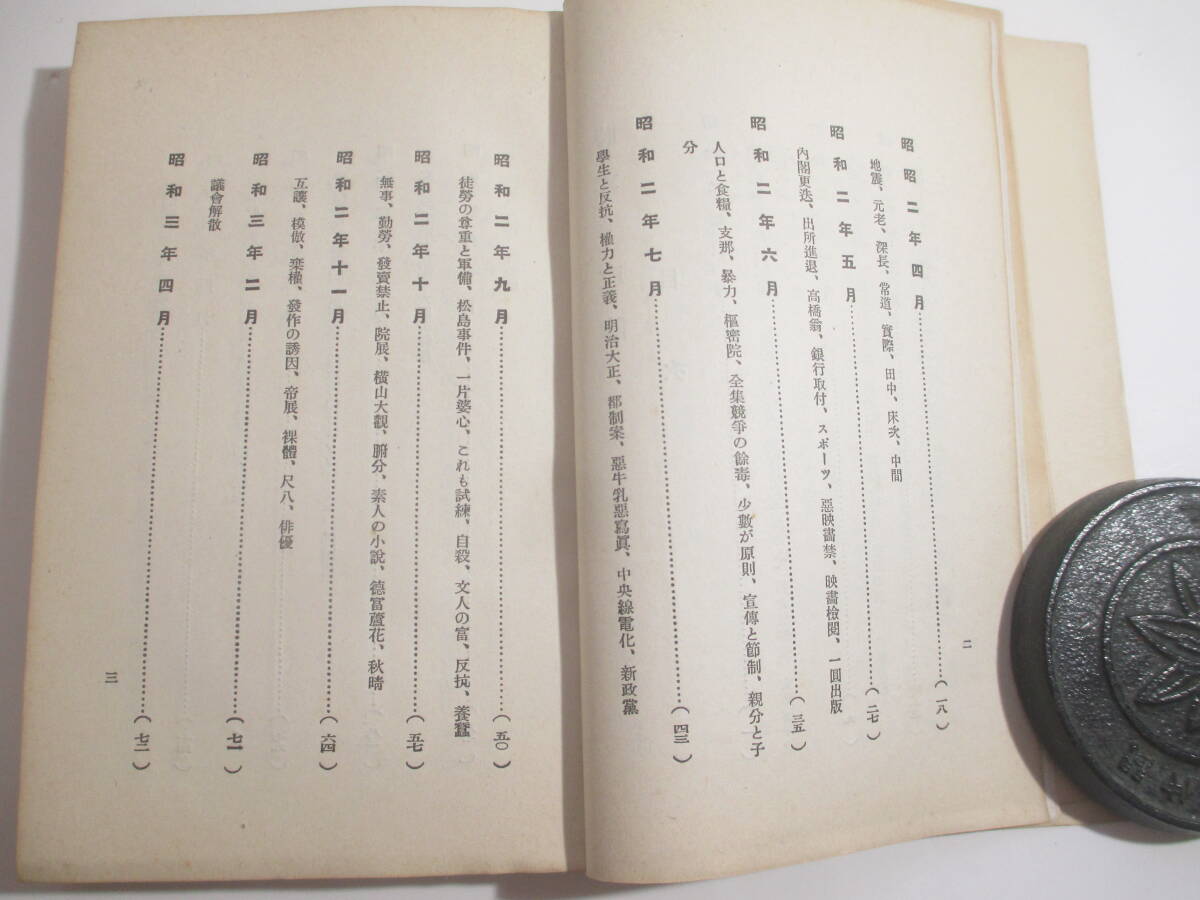 昭昭二年四月……(一八)
地震、元老、深長、常道、實際、田中、床次、中間
昭和二年五月……(二七)
內閣更迭、出所進退、高橋翁、銀行取付、スポーツ、惡映畵禁、映畵檢閱、一圓出版
昭和二年六月……(三五)
人口と食糧、支那、暴力、樞密院、全集競爭の餘毒、少數が原則、宣傳と節制、親分と子
分
昭和二年七月……(四三)
學生と反抗、權力と正義、明治大正、郡制案、惡牛乳惡寫眞、中央線電化、新政黨
二
昭和二年九月……(五〇)
徒勞の尊重と軍備、松島事件、一片婆心、これも試練、自殺、文人の富、反抗、養蠶
昭和二年十月……(五七)
無事、勤勞、發賣禁止、院展、橫山大觀、腑分、素人の小說、德富蘆花、秋晴
昭和二年十一月……(六四)
互讓、模倣、棄權、發作の誘因、帝展、裸體、尺八、俳優
昭和三年二月……(七一)
議會解散
昭和三年四月……(七二)
三